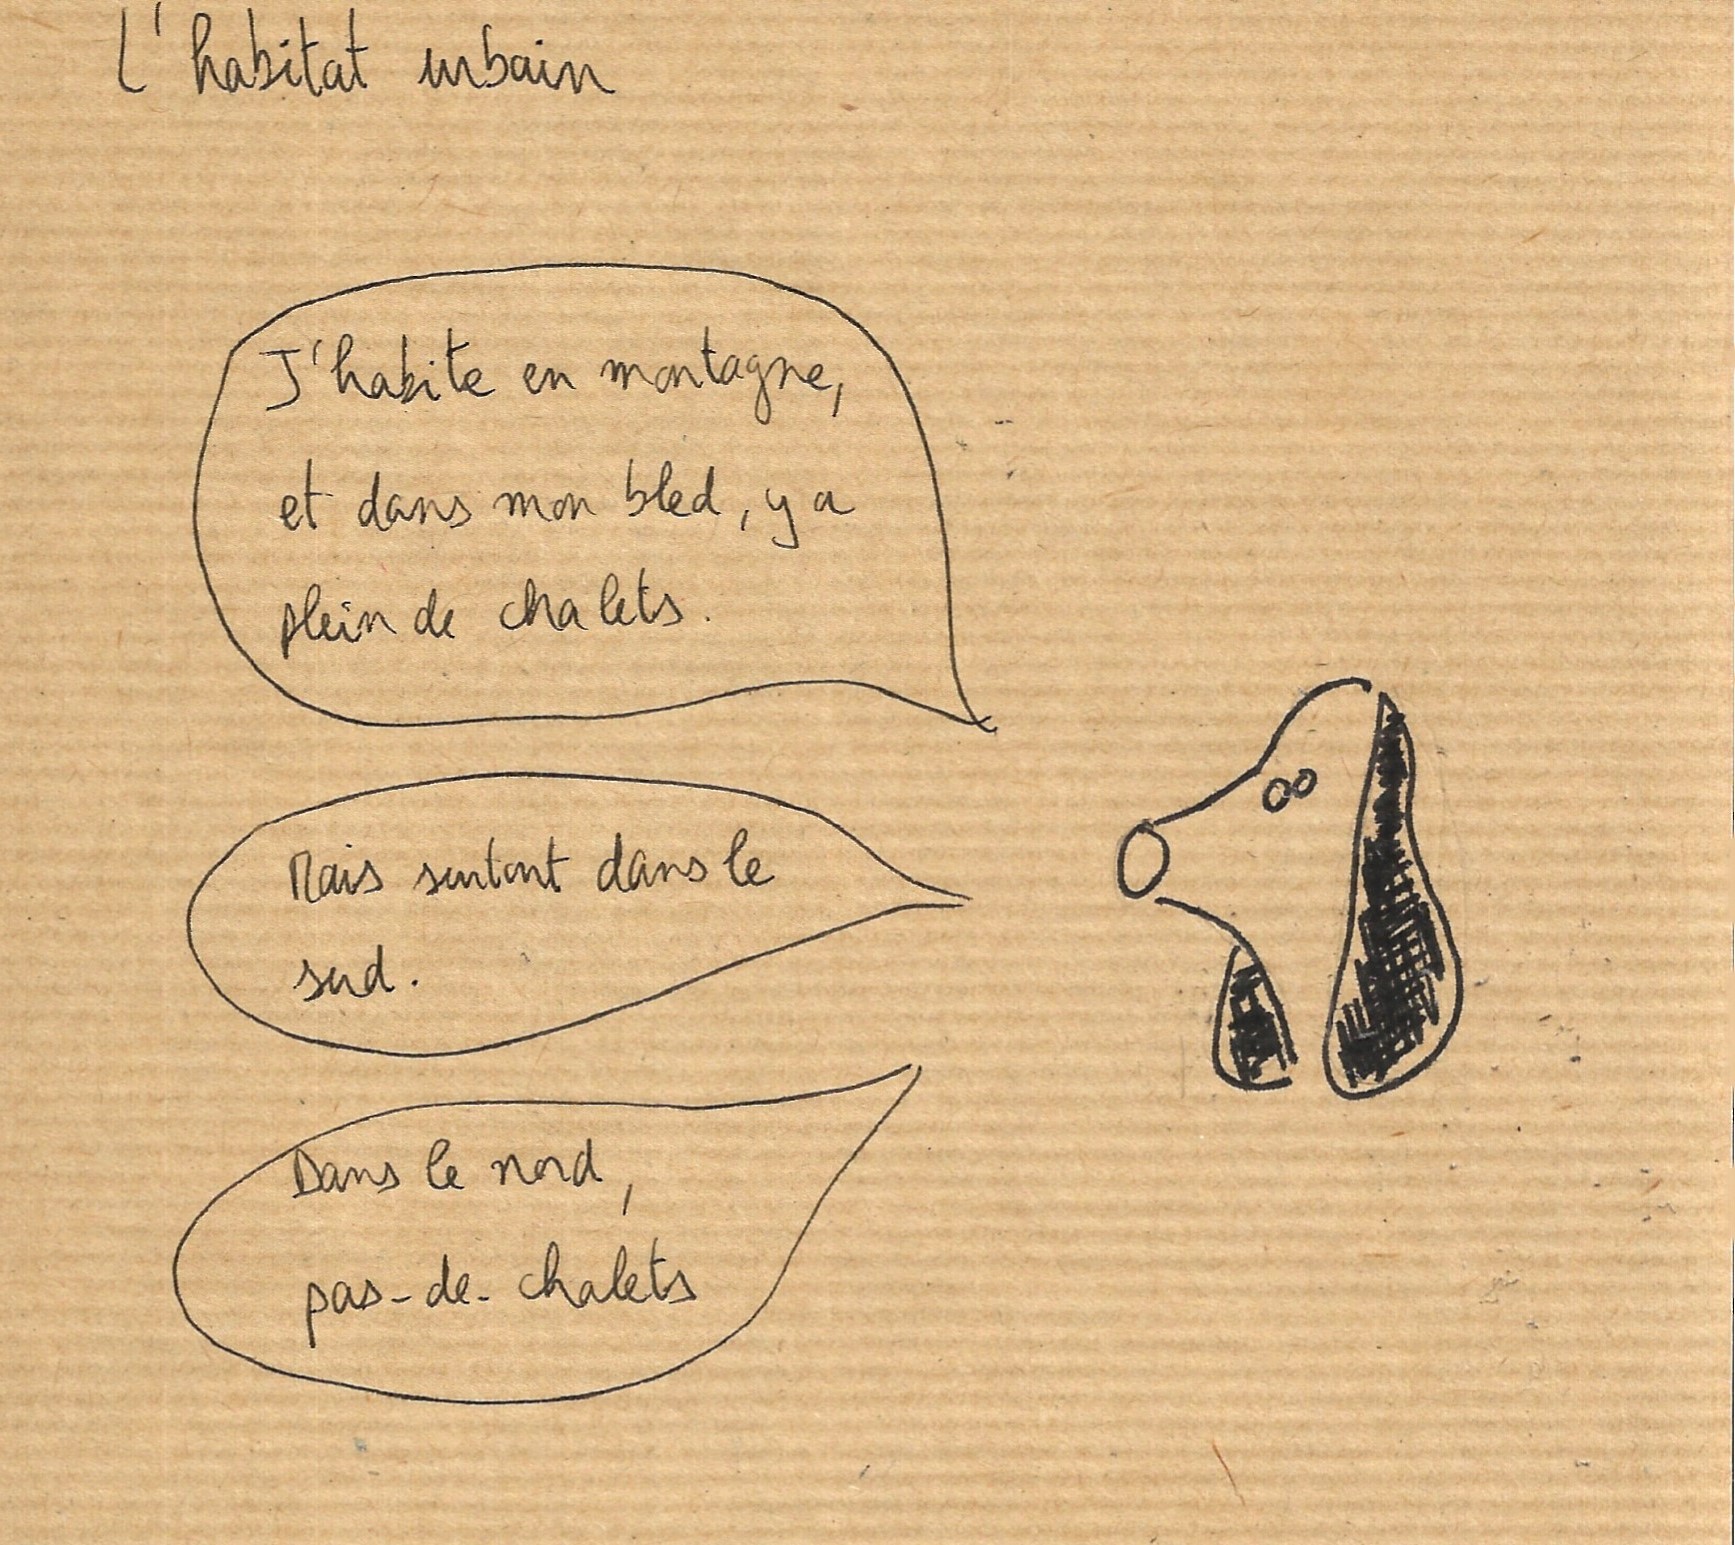 L'habitat urbain
J'habite en montagne,
et dans mon bled, y a
plein de chalets.
Mais surtout dans le
sud.
Dans le nord,
pas-de-chalets